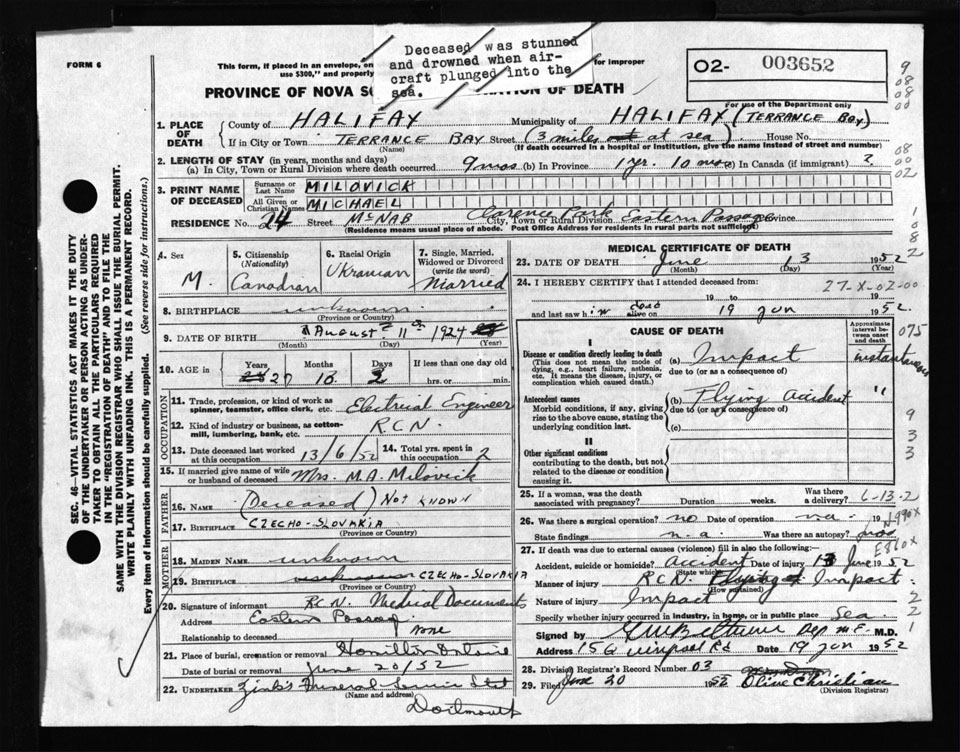 FORM 6
This form, if placed in an envelope, an
use $300," and property
for improper
Deceased was stunned
and drowned when air-
craft plunged into the
sea.
02- 003652
PROVINCE OF NOVA SC
RATION OF DEATH
For use of the Department only
1. PLACE OF DEATH
County of HALIFAX Municipality of HALIFAX (TERRANCE BAY)
If in City or Town TERRANCE BAY Street (3 miles at sea) House No.
(Name) (If death occurred in a hospital or institution, give the name instead of street and number)
2. LENGTH OF STAY (in years, months and days)
(a) In City, Town or Rural Division where death occurred 9 mos (b) In Province 1 yr. 10 mos (c) In Canada (if immigrant) ?
3. PRINT NAME OF DECEASED
Surname or Last Name MILOVICK
All Given or Christian Names MICHAEL
RESIDENCE No. 24 Street McNAB Clarence Park Eastern Passage
City, Town or Rural Division Province
(Residence means usual place of abode. Post Office Address for residents in rural parts not sufficient)
4. Sex M.
5. Citizenship (Nationality) Canadian
6. Racial Origin Ukranian
7. Single, Married, Widowed or Divorced (write the word) Married
8. BIRTHPLACE unknown
(Province or Country)
9. DATE OF BIRTH August 11 1924
(Month) (Day) (Year)
10. AGE in Years 27 Months 10 Days 2 If less than one day old
hrs. or min.
OCCUPATION
11. Trade, profession, or kind of work as spinner, teamster, office clerk, etc. Electrical Engineer
12. Kind of industry or business, as cotton-mill, lumbering, bank, etc. R.C.N.
13. Date deceased last worked at this occupation 13/6/52
14. Total yrs. spent in this occupation 2
15. If married give name of wife or husband of deceased Mrs. M.A. Milovick
FATHER
16. Name (Deceased) Not known
17. Birthplace CZECHO-SLOVAKIA
(Province or Country)
MOTHER
18. Maiden Name unknown
19. Birthplace CZECHO-SLOVAKIA
(Province or Country)
20. Signature of informant R.C.N. Medical Documents
Address Eastern Passage
Relationship to deceased None
21. Place of burial, cremation or removal Hamilton Ontario
Date of burial or removal June 20/52
22. UNDERTAKER Zink's Funeral Service Ltd
(Name and address)
Dartmouth
MEDICAL CERTIFICATE OF DEATH
23. DATE OF DEATH June 13 1952
(Month) (Day) (Year)
24. I HEREBY CERTIFY that I attended deceased from:
19 to 19
and last saw him dead alive on 19 Jun 1952
27-X-02-00
CAUSE OF DEATH
Approximate interval between onset and death
I
Disease or condition directly leading to death (a) Impact instantaneous
(This does not mean the mode of dying, e.g., heart failure, asthenia, etc. It means the disease, injury, or complication which caused death.)
due to (or as a consequence of)
Antecedent causes (b) Flying accident "
Morbid conditions, if any, giving rise to the above cause, stating the underlying condition last.
due to (or as a consequence of)
(c)
II
Other significant conditions
contributing to the death, but not related to the disease or condition causing it.
25. If a woman, was the death associated with pregnancy? Duration weeks. Was there a delivery? 6-13-2
26. Was there a surgical operation? no Date of operation n.a. 19
State findings n.a. Was there an autopsy?
N-990X
E860X
27. If death was due to external causes (violence) fill in also the following:—
Accident, suicide or homicide? accident Date of injury 13 June 1952
(State which)
Manner of injury R.C.N. Flying Impact
(How sustained)
Nature of injury Impact
Specify whether injury occurred in industry, in home, or in public place Sea
Signed by Dep M.E. M.D.
Address 156 Quinpool Rd Date 19 Jun 1952
28. Division Registrar's Record Number 03
29. Filed June 20 1952 Olive Christian
(Division Registrar)
SEC. 46—VITAL STATISTICS ACT MAKES IT THE DUTY
OF THE UNDERTAKER OR PERSON ACTING AS UNDER-
TAKER TO OBTAIN ALL THE PARTICULARS REQUIRED
IN THE "REGISTRATION OF DEATH" AND TO FILE THE
SAME WITH THE DIVISION REGISTRAR WHO SHALL ISSUE THE BURIAL PERMIT.
WRITE PLAINLY WITH UNFADING INK. THIS IS A PERMANENT RECORD.
Every item of information should be carefully supplied. (See reverse side for instructions.)
9
08
08
00
08
00
02
1
0
8
2
075
9
3
3
2
2
1